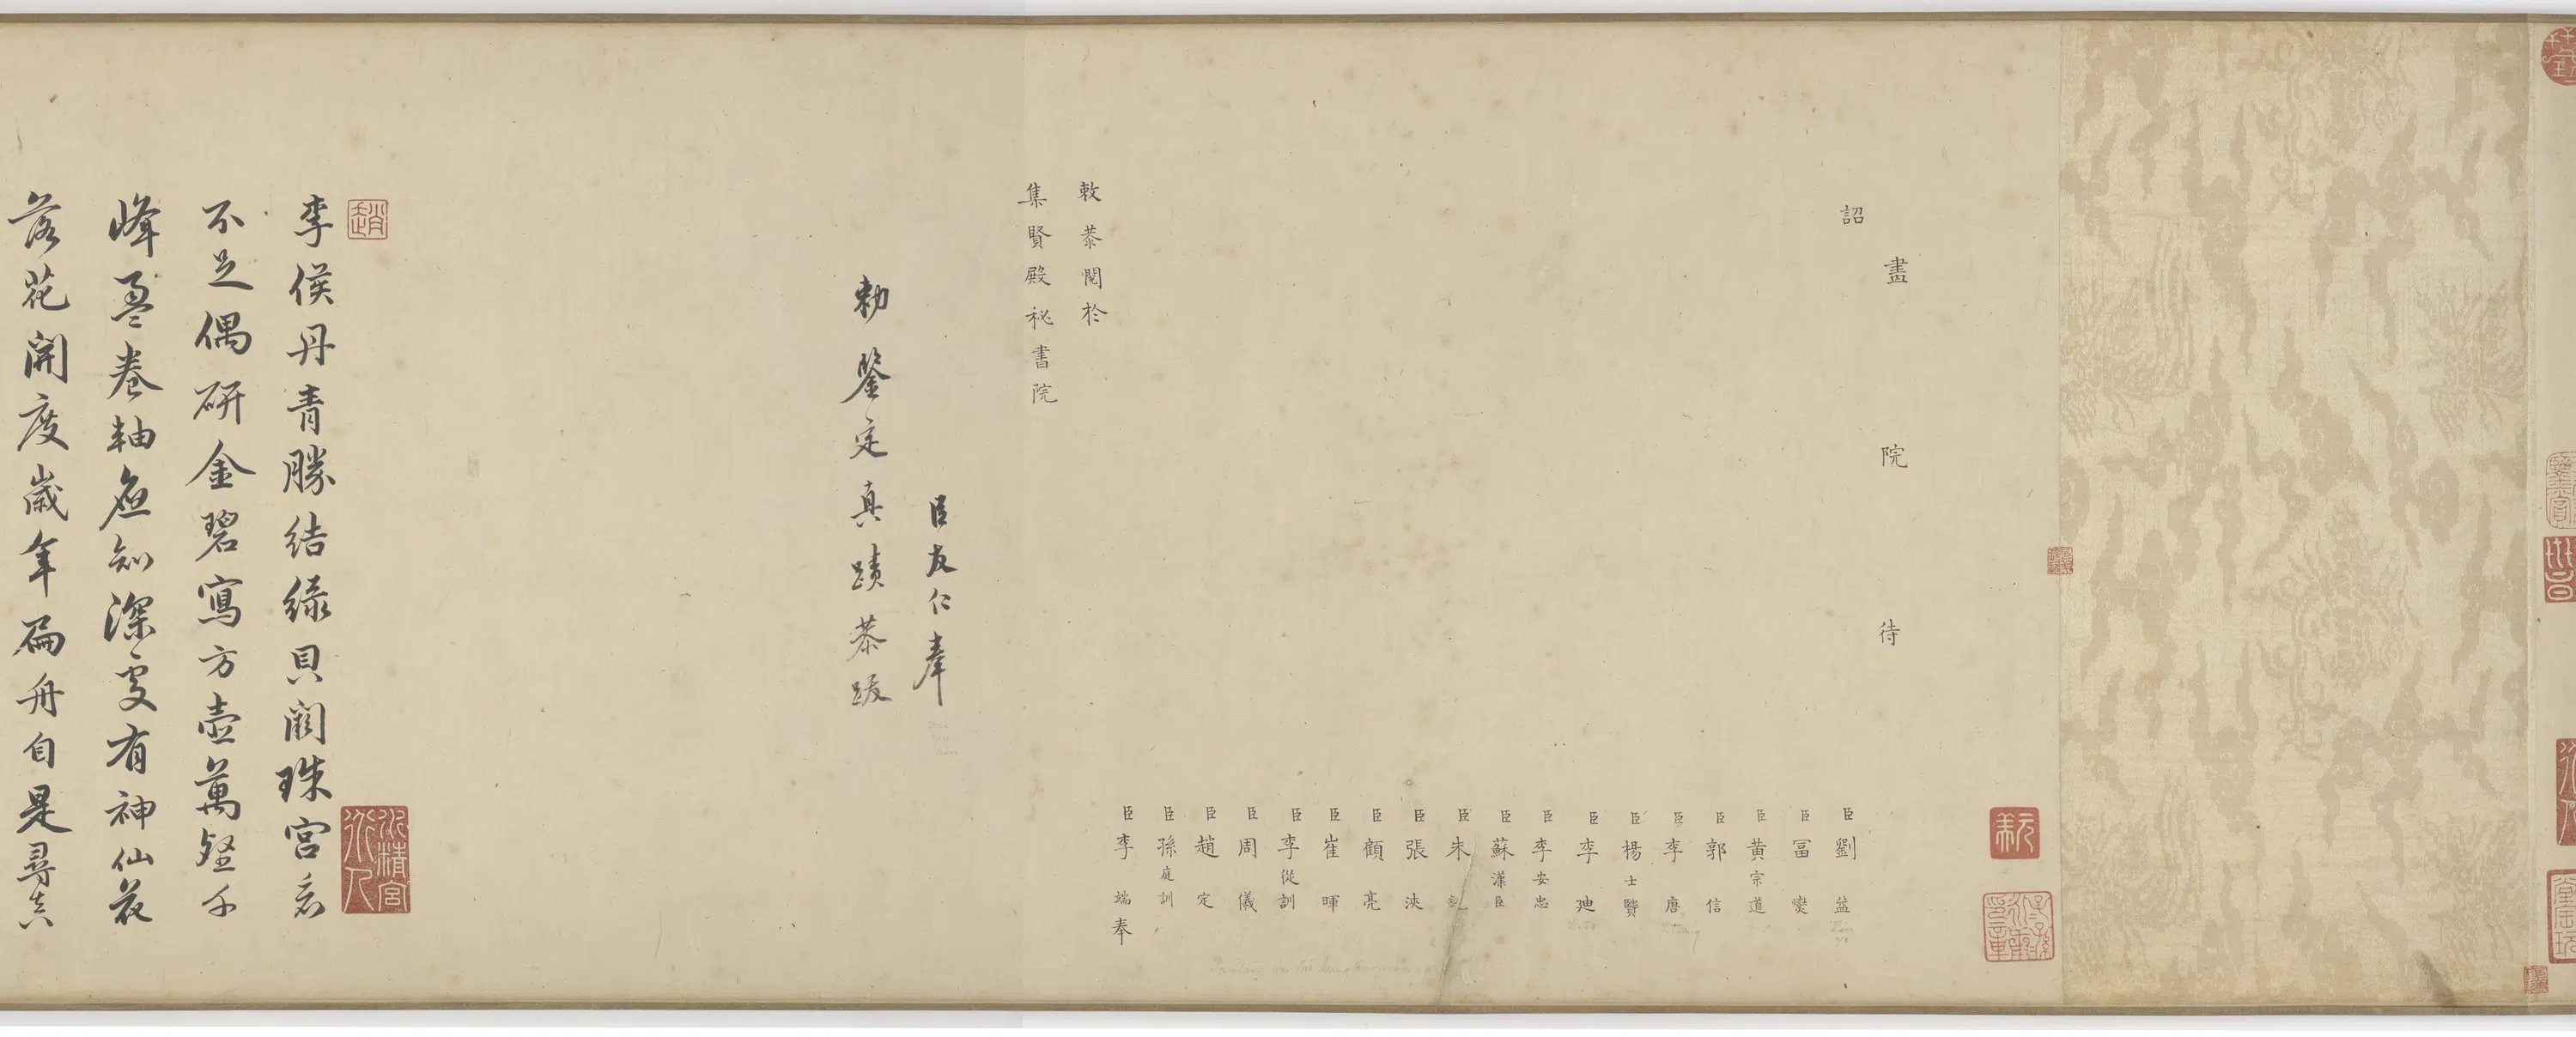 畫院待
詔
臣劉益
臣冨燮
臣黃宗道
臣郭信
臣李唐
臣楊士賢
臣李廸
臣李安忠
臣蘇漢臣
臣朱
臣張浹
臣顧亮
臣崔暉
臣李從訓
臣周儀
臣趙定
臣孫庭訓
臣李端奉
敕恭閱於
集賢殿秘書院
臣友仁奉
勅鑒定真蹟恭跋
趙
水精宮
李侯丹青勝結綠貝闕珠宮看
不足偶研金碧寫方壺萬壑千
峰盈卷軸應知深處有神仙花
落花開度歲年扁舟自是尋真